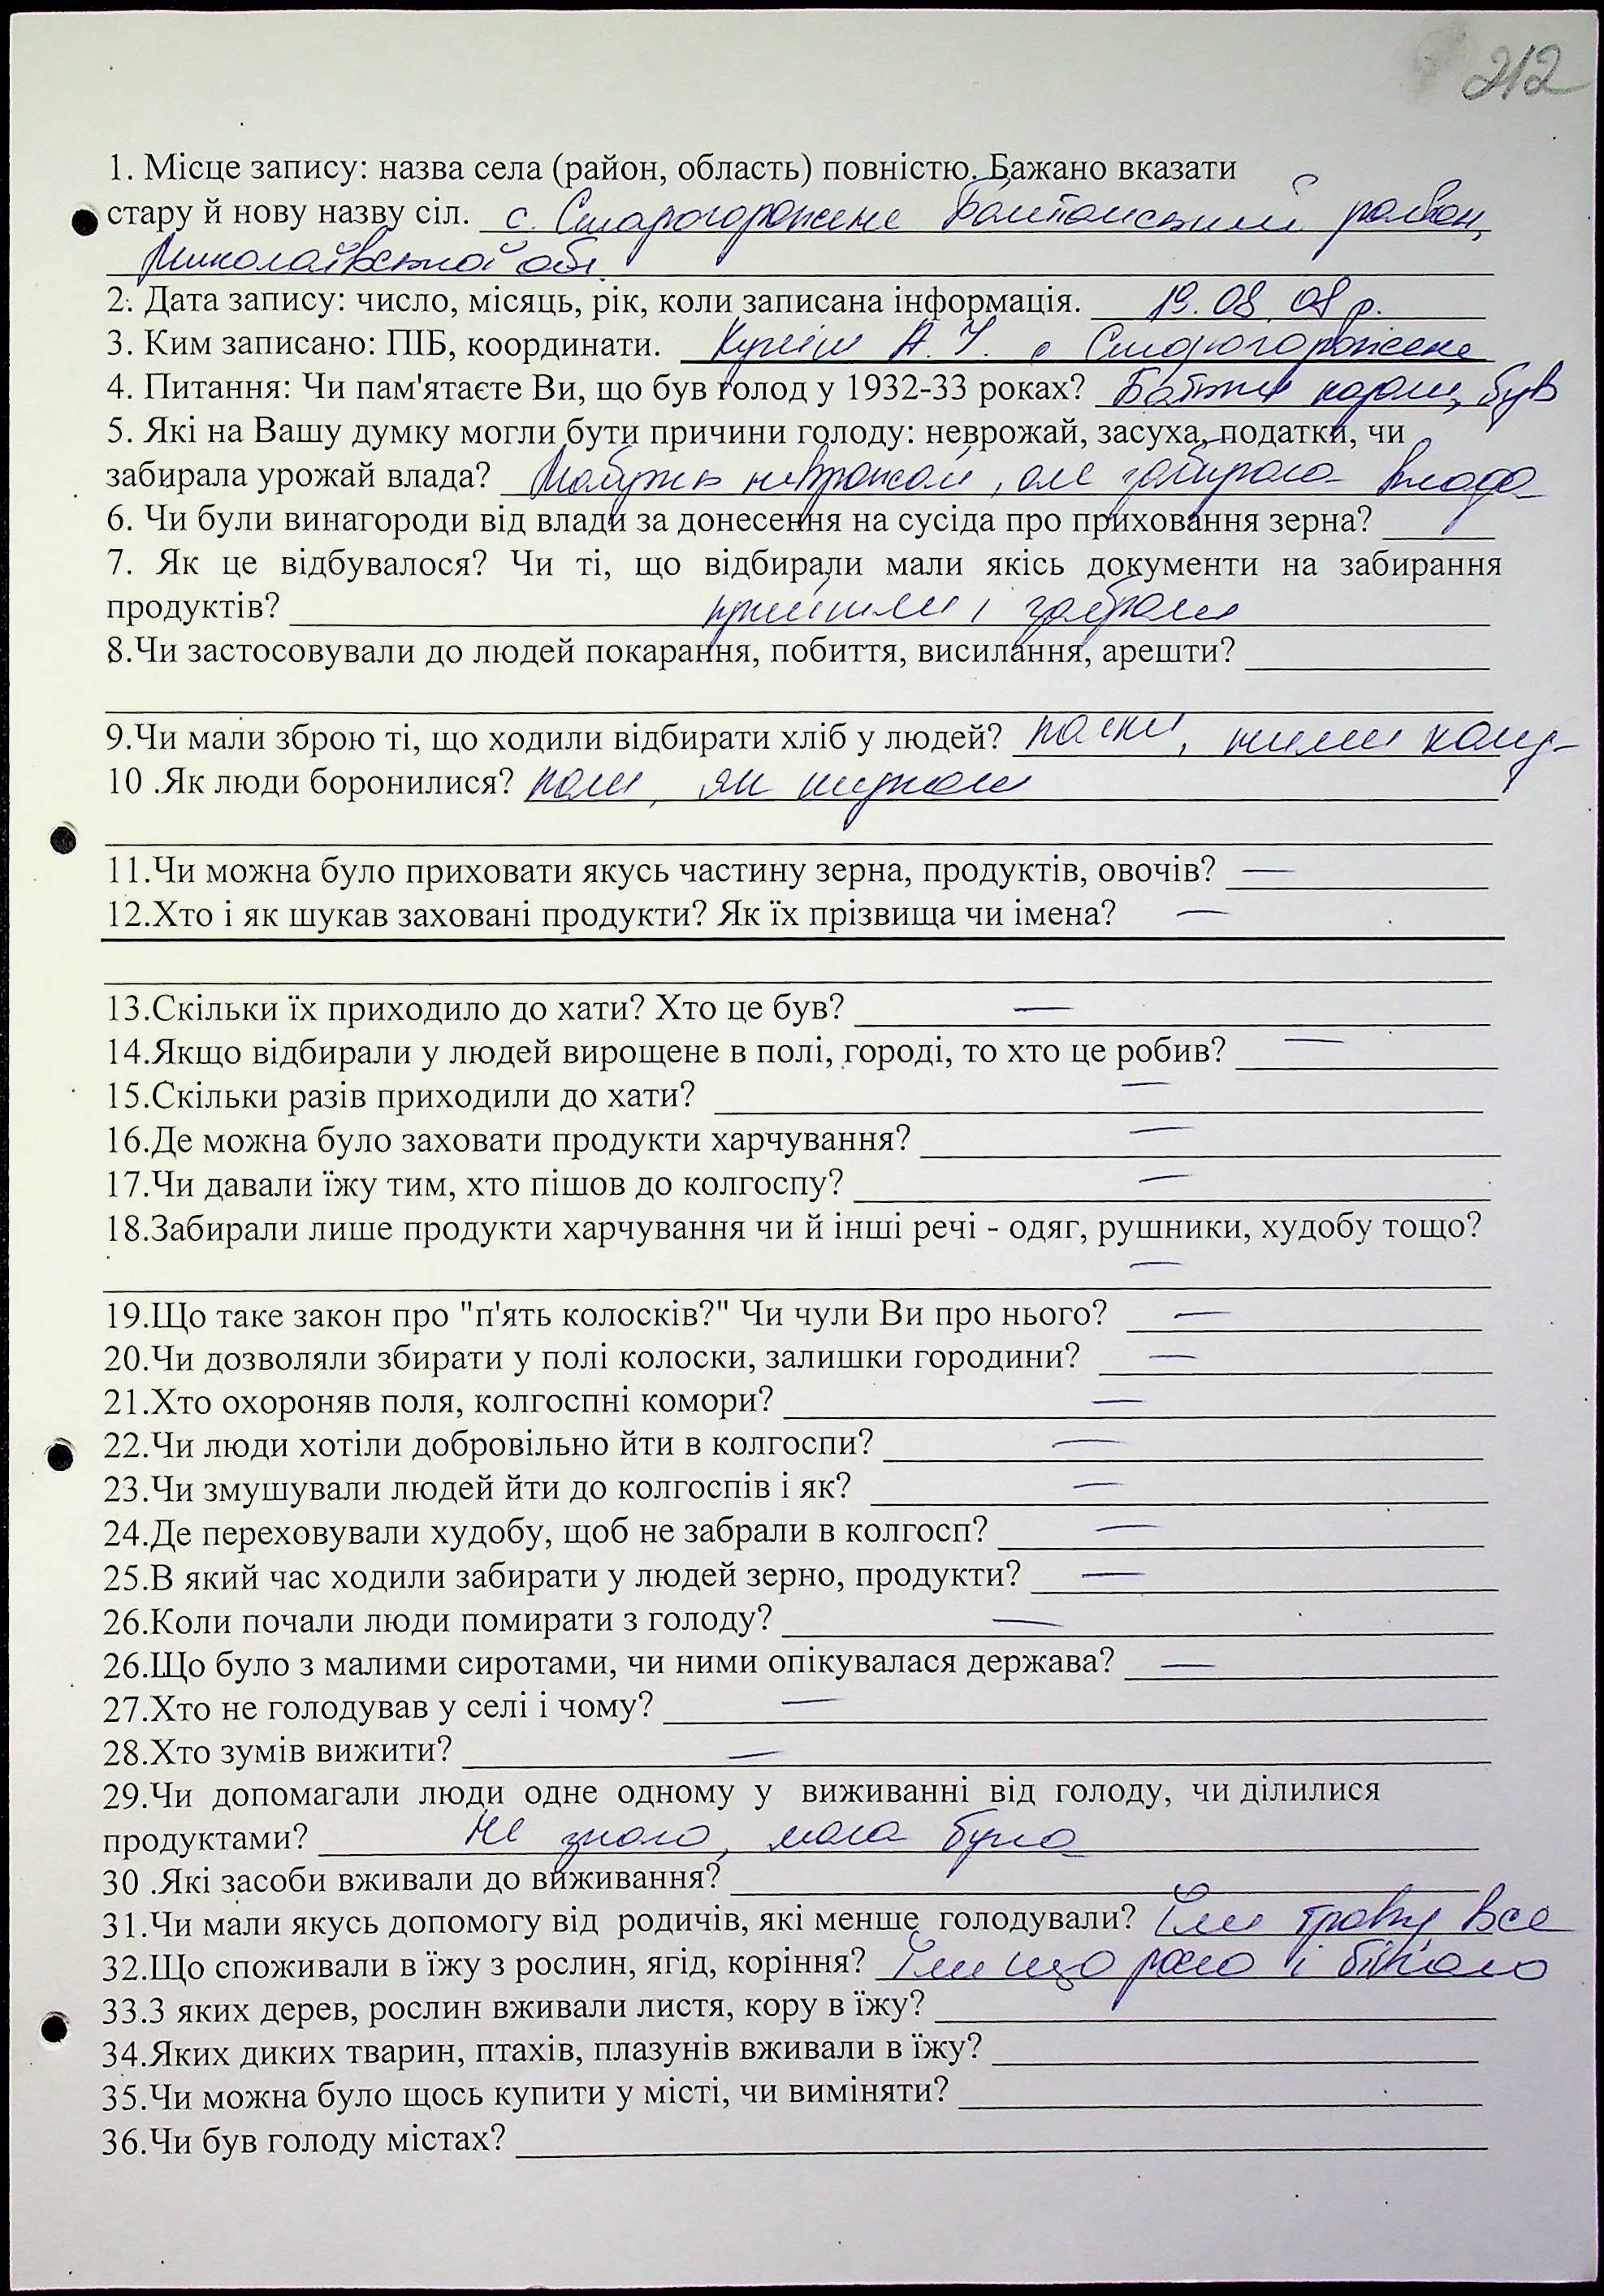 212
1. Місце запису: назва села (район, область) повністю. Бажано вказати
стару й нову назву сіл. с. Старогорожене Баштанський район,
Миколаївської обл.
2. Дата запису: число, місяць, рік, коли записана інформація. 19. 08. 08 р.
3. Ким записано: ПІБ, координати. А. с Старогорожене
4. Питання: Чи пам'ятаєте Ви, що був голод у 1932-33 роках? Батьки казали, був
5. Які на Вашу думку могли бути причини голоду: неврожай, засуха, податки, чи
забирала урожай влада? Мабуть неврожай, але забирала влада
6. Чи були винагороди від влади за донесення на сусіда про приховання зерна?
7. Як це відбувалося? Чи ті, що відбирали мали якісь документи на забирання
продуктів? прийшли і забрали
8.Чи застосовували до людей покарання, побиття, висилання, арешти?
9.Чи мали зброю ті, що ходили відбирати хліб у людей? палки,
10 .Як люди боронилися? як
11.Чи можна було приховати якусь частину зерна, продуктів, овочів? —
12.Хто і як шукав заховані продукти? Як їх прізвища чи імена? —
13.Скільки їх приходило до хати? Хто це був? —
14.Якщо відбирали у людей вирощене в полі, городі, то хто це робив? —
15.Скільки разів приходили до хати? —
16.Де можна було заховати продукти харчування? —
17.Чи давали їжу тим, хто пішов до колгоспу? —
18.Забирали лише продукти харчування чи й інші речі - одяг, рушники, худобу тощо?
—
19.Що таке закон про "п'ять колосків?" Чи чули Ви про нього? —
20.Чи дозволяли збирати у полі колоски, залишки городини? —
21.Хто охороняв поля, колгоспні комори? —
22.Чи люди хотіли добровільно йти в колгоспи? —
23.Чи змушували людей йти до колгоспів і як? —
24.Де переховували худобу, щоб не забрали в колгосп? —
25.В який час ходили забирати у людей зерно, продукти? —
26.Коли почали люди помирати з голоду? —
26.Що було з малими сиротами, чи ними опікувалася держава? —
27.Хто не голодував у селі і чому? —
28.Хто зумів вижити? —
29.Чи допомагали люди одне одному у виживанні від голоду, чи ділилися
продуктами? Не знаю, мала була
30 .Які засоби вживали до виживання?
31.Чи мали якусь допомогу від родичів, які менше голодували? Їли траву все
32.Що споживали в їжу з рослин, ягід, коріння? Їли що росло і бігало
33.З яких дерев, рослин вживали листя, кору в їжу?
34.Яких диких тварин, птахів, плазунів вживали в їжу?
35.Чи можна було щось купити у місті, чи виміняти?
36.Чи був голоду містах?